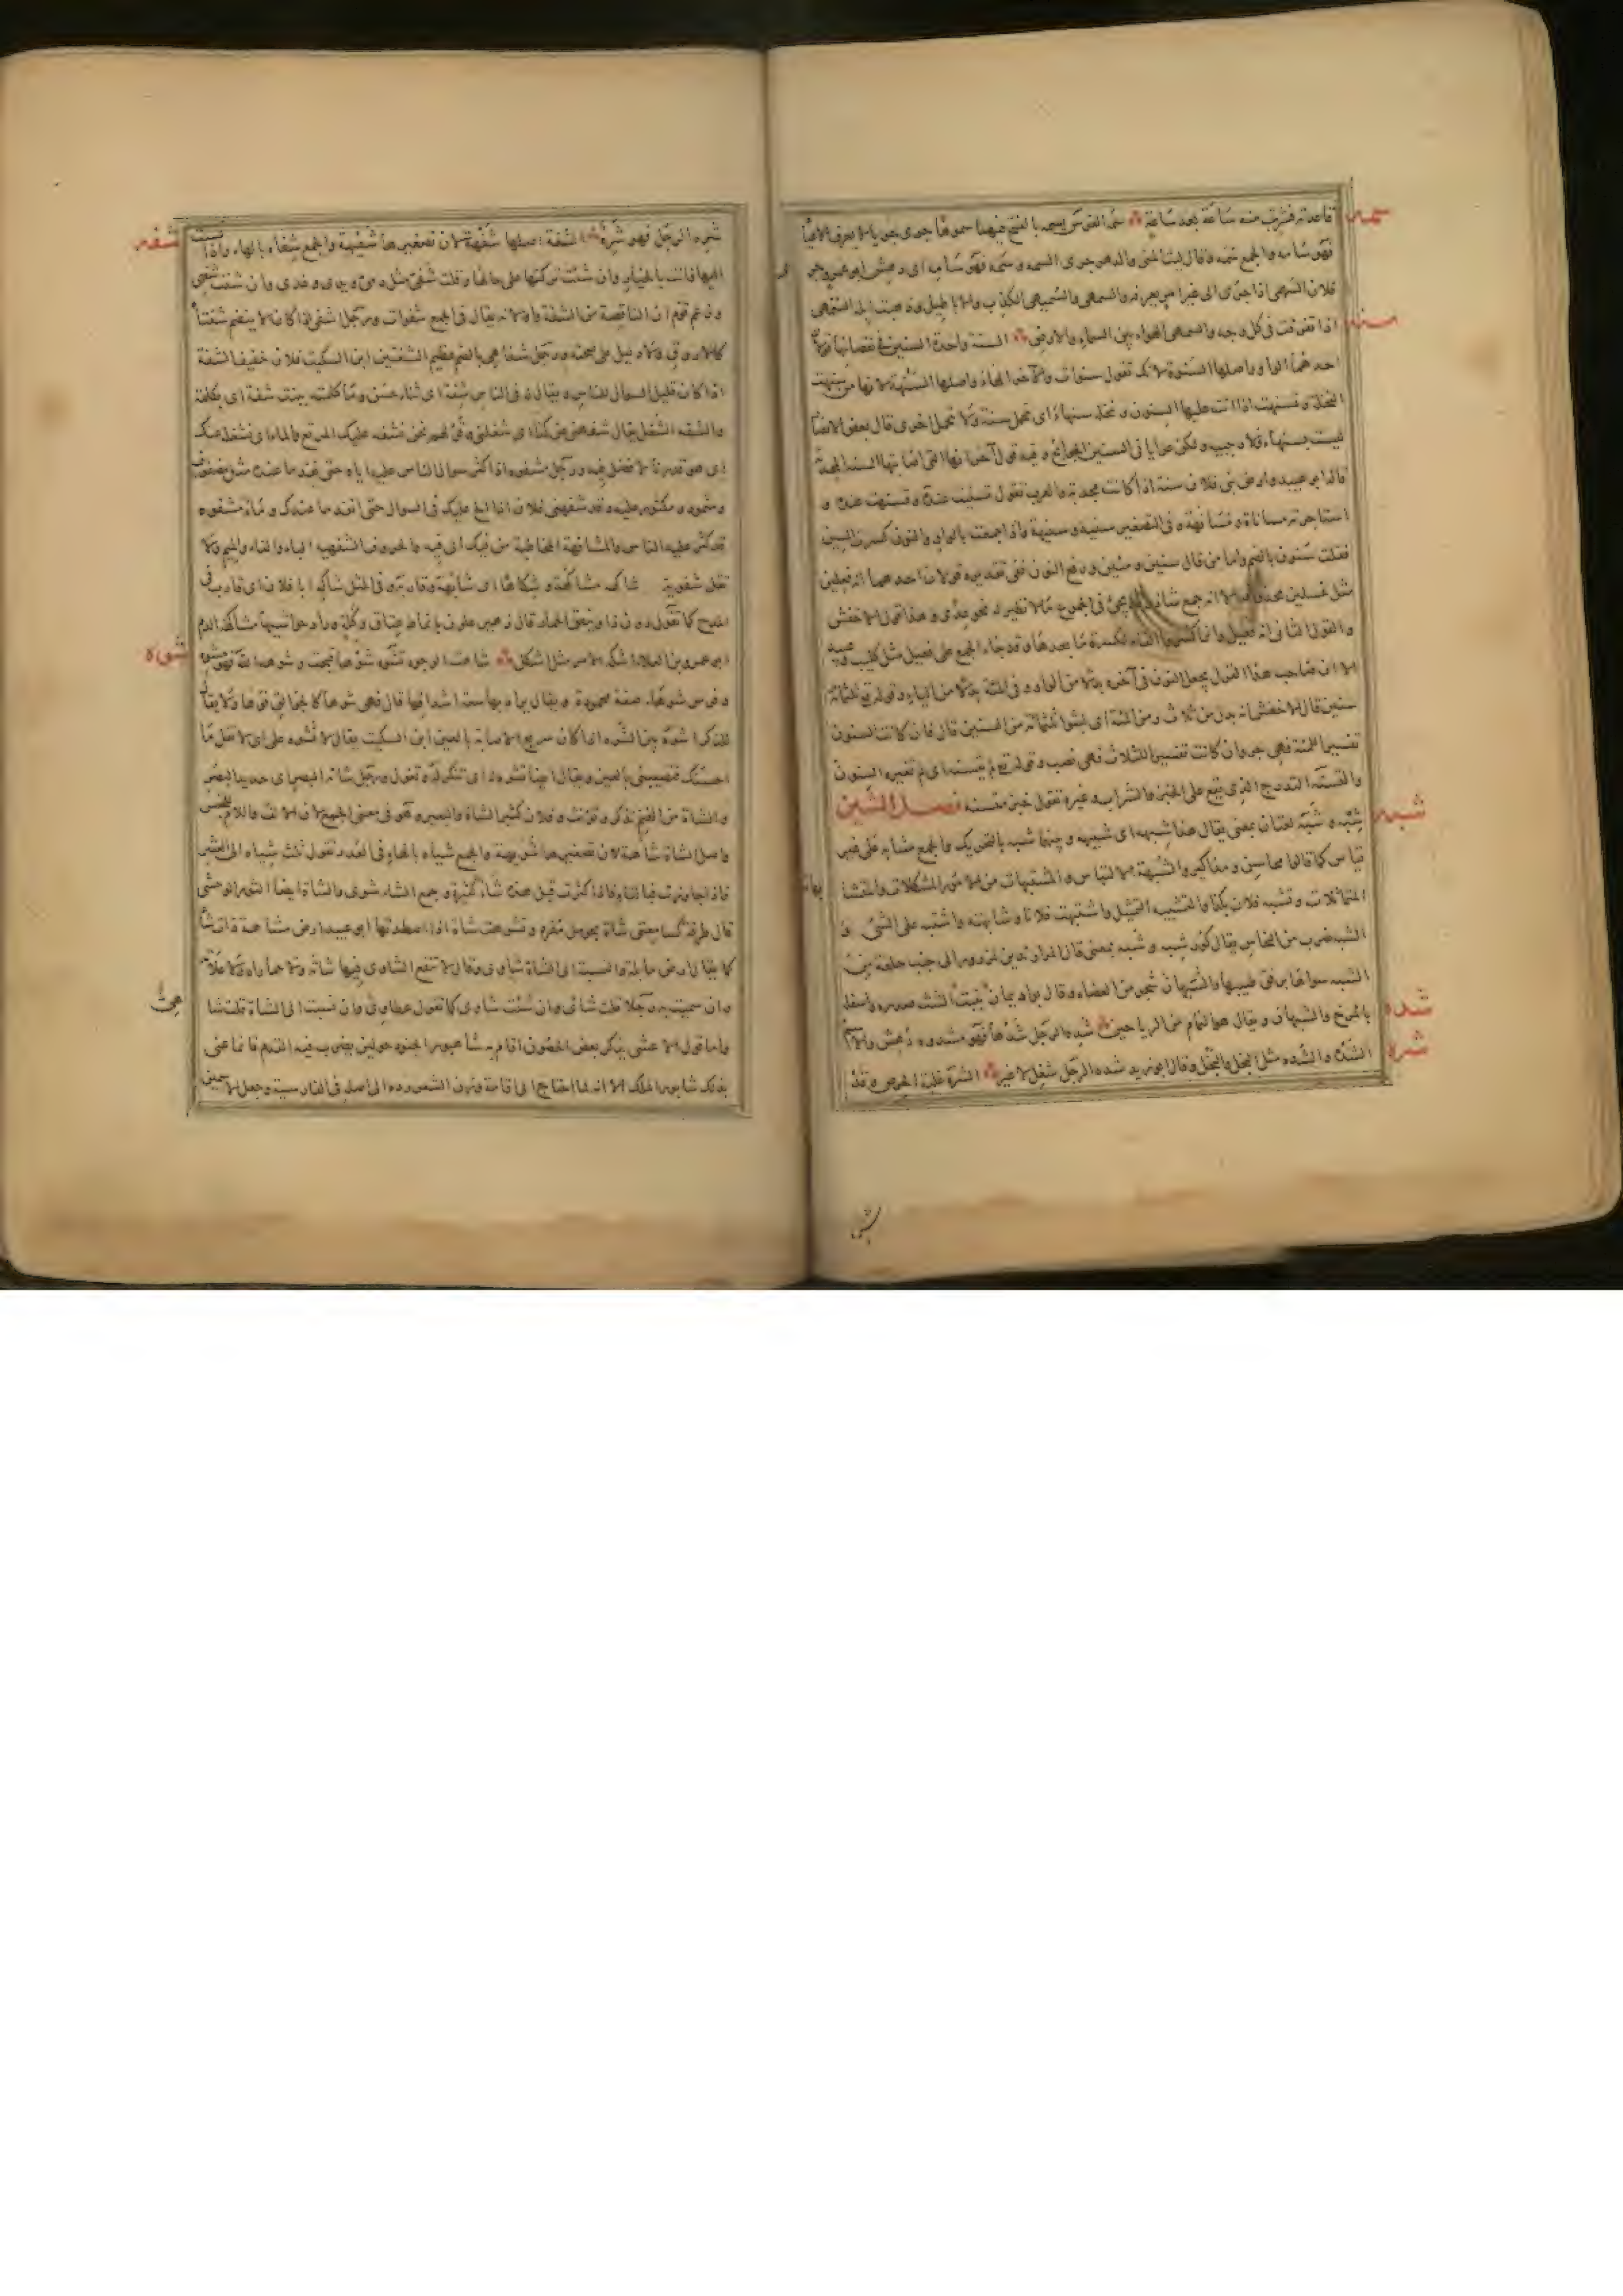 سمه
قاعدته فشرب منه ساعة بعد ساعة سمه الفرس يسمه بالفتح فيهما سموها جرى جريا لا يعرف الاعيا
فهو سامه والجمع سمه وقال ليت المنى والدهر جرى السمه وسمه فهو سامه اى دهش ابو عمرو جرى
فلان السمهى اذا جرى الى غير امر يعرفه والسمهى والسميهى الكذب والاباطيل وذهبت ابله السمهى
سنه
اذا تفرقت فى كل وجه والسمهى الهواء بين السماء والارض السنة واحدة السنين فى نقصانها قولان
احدهما الواو واصلها السنوة لانك تقول سنوات والآخر الهاء واصلها السنهة لانها من سنهت
النخلة وتسنهت اذا اتت عليها السنون ونخلة سنهاء اى تحمل سنة ولا تحمل اخرى قال بعض الانصار
ليست بسنهاء ولا رجبية ولكن عرايا فى السنين الجوائح وفيه قول آخر انها التى اصابتها السنة المجدبة
قال ابو عبيد وارض بنى فلان سنة اذا كانت مجدبة والعرب تقول تسنيت عنده وتسنهت عنده و
استاجرته مساناة ومسانهة وفى التصغير سنية وسنيهة واذا جمعت بالواو والنون كسرت السين
فقلت سنون بالضم واما من قال سنين ومئين ورفع النون ففى تقديره قولان احدهما انه فعلين
مثل غسلين محذوفة الا انه جمع شاذ وقد يجئ فى الجموع ما لا نظير له نحو عدى وهذا قول الاخفش
والقول الثانى انه فعيل وانما كسروا الفاء لكسرة ما بعدها وقد جاء الجمع على فعيل مثل كليب وعبيد
الا ان صاحب هذا القول يجعل النون فى آخره بدلا من الواو وفى المئة بدلا من الياء وقوله تع ثلثمائة
سنين قال الاخفش انه بدل من ثلاث ومن المئة اى لبثوا ثلثمائة من السنين قال فان كانت السنون
تفسيرا للمئة فهى جر وان كانت تفسيرا للثلاث فهى نصب وقوله تع لم يتسنه اى لم تغيره السنون
والتسنه التدرج الذى يقع على الخبز والشراب وغيره تقول خبز متسنه فصل الشين
شبه
شبه وشبه لغتان بمعنى يقال هذا شبهه اى شبيهه وبينهما شبه بالتحريك والجمع مشابه على غير
قياس كما قالوا محاسن ومذاكير والشبهة الالتباس والمشتبهات من الامور المشكلات والمتشا
بهات
المتماثلات وتشبه فلان بكذا والتشبيه التمثيل واشبهت فلانا وشابهته واشتبه على الشئ و
الشبه ضرب من النحاس يقال كوز شبه وشبه بمعنى قال المرار تدين لمزرور الى جنب حلقة من
الشبه سواها برفق طبيبها والشبهان شجر من العضاه وقال بواد يمان ينبت الشث صدره واسفله
شده
بالمرخ والشبهان ويقال هو الثمام من الرياحين شده الرجل شدها فهو مشدوه دهش والاسم
شره
الشده والشده مثل البخل والبخل وقال ابو زيد شده الرجل شغل لا غير الشره غلبة الحرص وقد
شره الرجل فهو شره الشفة اصلها شفهة لان تصغيرها شفيهة والجمع شفاه بالهاء واذا نسبت
شفه
اليها فانت بالخيار ان شئت تركتها على حالها وقلت شفى مثل دمى ويدى وعدى وان شئت شفهى
وزعم قوم ان الناقصة من الشفة واو لانه يقال فى الجمع شفوات ورجل اشفى اذا كان لا ينضم شفتاه
كالاروق ولا دليل على صحته ورجل شفاهى بالضم عظيم الشفتين ابن السكيت فلان خفيف الشفة
اذا كان قليل السوال للناس ويقال له فى الناس شفة اى ثناء حسن وما كلمته ببنت شفة اى بكلمة
والشفه الشغل يقال شفهنى عن كذا اى شغلنى وقولهم نحن نشفه عليك المرتع والماء اى نشغله عنك
اى هو قدرنا لا فضل فيه ورجل مشفوه اذا كثر سوال الناس عليه اياه حتى نفد ما عنده مثل مضفوف
ومثمود ومكثور عليه وقد شفهنى فلان اذا الح عليك فى السوال حتى انفد ما عندك وماء مشفوه
قد كثر عليه الناس والمشافهة المخاطبة من فيك الى فيه والحروف الشفهية الباء والفاء والميم ولا
تقل شفوية شاكه مشاكهة وشكاها اى شابهه وقاربه وفى المثل شاكه ابا فلان اى قارب فى
المدح كما تقول دون ذا وينفق الحمار قال زهير علون بانماط عتاق وكلة وراد حواشيها مشاكهة الدم
شوه
ابو عمرو بن العلاء اشكه الامر مثل اشكل شاهت الوجوه تشوه شوها قبحت وشوهه الله فهو مشوه
وفرس شوهاء صفة محمودة ويقال يراد بها سعة اشداقها قال فهى شوهاء كالجوالق فوها ولا يقال
للذكر اشوه بين الشوه اذا كان سريع الاصابة بالعين ابن السكيت يقال لا تشوه على اى لا تقل ما
احسنك فتصيبنى بالعين ويقال ايضا تشوه له اى تنكر له وتقول ورجل شائه البصر اى حديد البصر
والشاة من الغنم تذكر وتونث وفلان كثير الشاة والبعير وهو فى معنى الجمع لان الالف واللام للجنس
واصل الشاة شاهة لان تصغيرها شويهة والجمع شياه بالهاء فى العدد تقول ثلث شياه الى العشر
فاذا جاوزت فبالتاء فاذا كثرت قيل هذه شاء كثيرة وجمع الشاء شوى والشاة ايضا الثور الوحشى
قال طرفة كسامعتى شاة بحومل مفرد وتشوهت شاة اذا اصطدتها ابو عبيد ارض مشاهة ذات شاء
كما يقال ارض مابلة والنسبة الى الشاء شاوى وقال لا تنفع الشاوى فيها شاته ولا حماراه ولا علاته
وان سميت به رجلا قلت شائى وان شئت شاوى كما تقول عطاوى وان نسبت الى الشاة قلت شا
هى
واما قول الاعشى يذكر بعض الحصون اقام به شاهبور الجنود حولين يضرب فيه القدم فانما عنى
بذلك شابور الملك الا انه لما احتاج الى اقامة وزن الشعر رده الى اصله فى الفارسية وجعل الاسمين